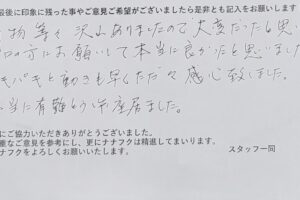 最後に印象に残った事やご意見ご希望がございましたら是非とも記入をお願いします
物等々沢山ありましたので大変だったと思
プロの方にお願いして本当に良かったと思いました
キパキと動きも早くただ々感心致しました。
当に有難とうございました。
にご協力いただきありがとうございました。
重なご意見を参考にし、更にナナフクは精進してまいります。
ナナフクをよろしくお願いいたします。
スタッフ一同